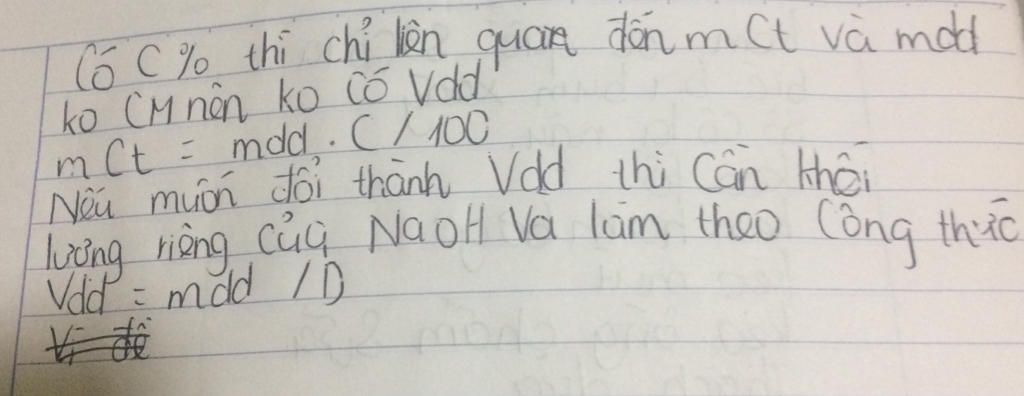 Có C% thì chỉ liên quan đến mCt và mdd
ko CM nên ko có Vdd
mCt = mdd . C / 100
Nếu muốn đổi thành Vdd thì cần khối
lượng riêng của NaOH và làm theo công thức
Vdd = mdd / D
Vì đề